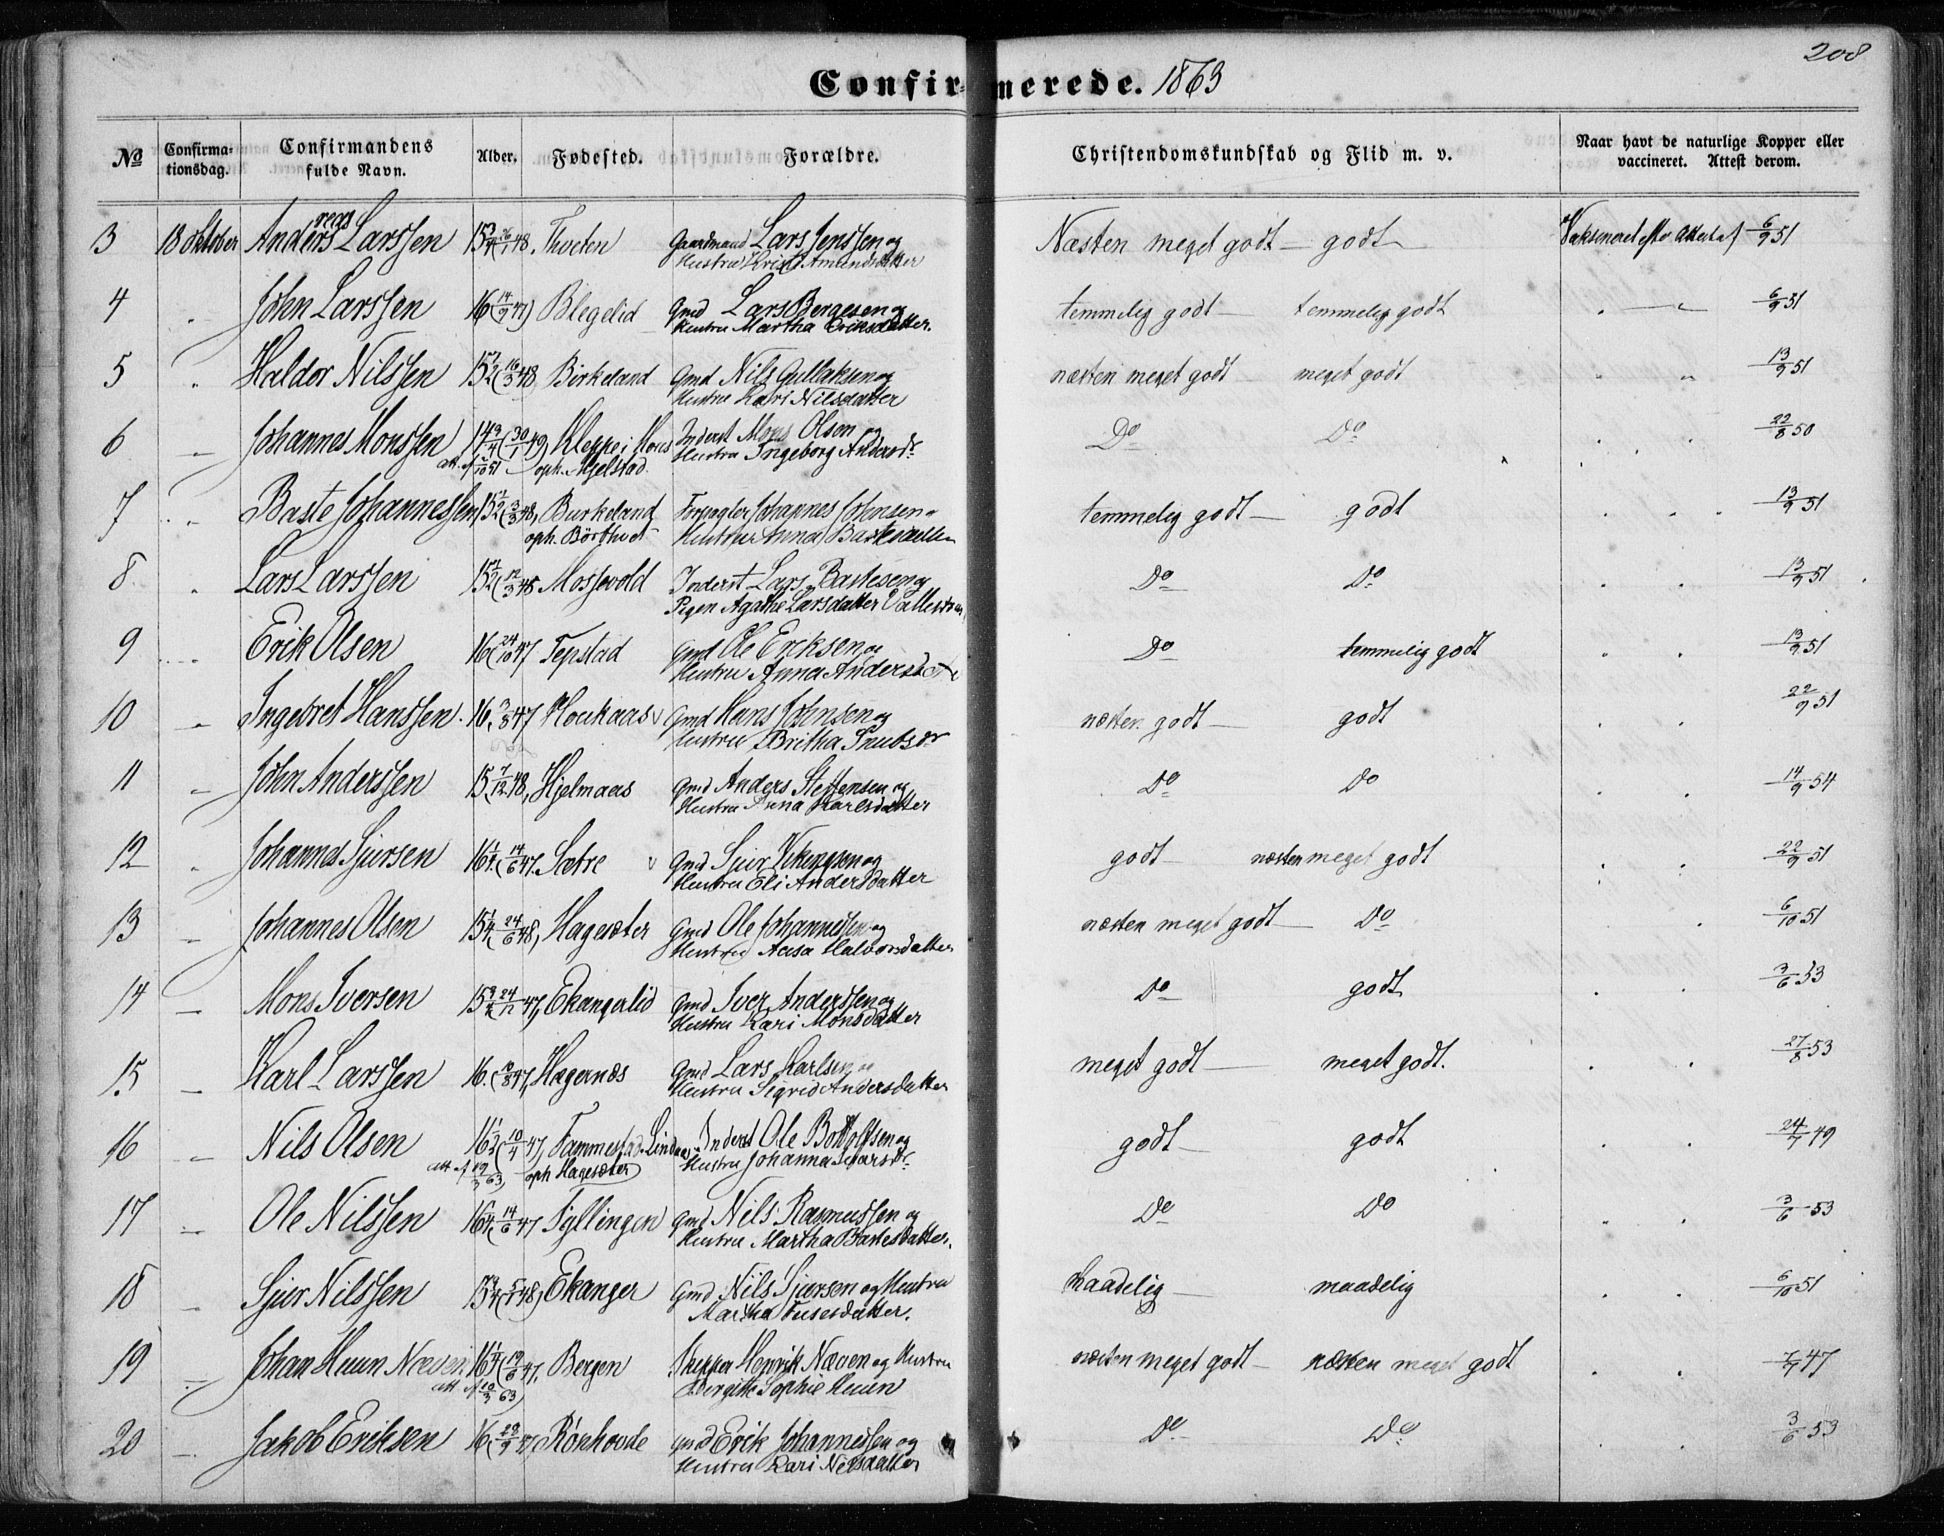 208
Confirmerede. 1863
No
Confirmationsdag.
Confirmandens fulde Navn.
Alder.
Fødested.
Forældre.
Christendomskundskab og Flid m. v.
Naar havt de naturlige Kopper eller vaccineret. Attest derom.
3 18 Oktober Anders Larssen reas 15 3/4 48, Gaardmand Lars Jenssen og Næsten meget godt — godt 6/9 51
Hustru
4 John Larssen 16 (14/9 47) Blegelid Gmd Lars Bergesen og temmelig godt — temmelig godt 6/9 51
Hustru Martha Eriksdatter.
5 Haldor Nilssen 15 1/2 (16/3 48, Birkeland Gmd Nils Gullaksen og næsten meget godt — meget godt 13/9 51
Hustru Kari Nilsdatter
6 Johannes Monssen 14 3/4 (30/1 49) Kleppe i Hous Inderst Mons Olsen og Do Do 22/8 50
oph. Mjelstad. Hustru Ingeborg Andersdr
7 Baste Johannessen 15 1/2 (3/3 48, Birkeland Johannes Johnsen temmelig godt — godt 13/9 51
oph. Hustru Anna
8 Lars Larssen 15 1/2 (12/3 48 Mossevold Inderst Lars Bastesen og Do Do 13/9 51
Pigen Agathe Larsdatter
9 Erik Olsen 16 (24/10 47 Tepstad Gmd Ole Eriksen og Do temmelig godt 13/9 51
Hustru Anna
10 Ingebret Hanssen 16. 3/8 47 Gmd Hans Johnsen og næsten godt — godt 22/9 51
Hustru Britha
11 John Anderssen 15 7/12 48, Hjelmaas Gmd Anders Steffensen og Do Do 14/9 54
Hustru Anna Karlsdatter
12 Johannes Sjursen 16 1/4 (14/6 47. Sætre Gmd Sjur Vikingsen og godt — næsten meget godt 22/9 51
Hustru Eli Andersdatter
13 Johannes Olsen 15 1/4 24/6 48, Hagesæter Gmd Ole Johannessen og næsten meget godt — Do 6/10 51
Hustru Halvorsdatter
14 Mons Iversen 15 3/4 24/12 47, Ekangerlid Gmd Iver Anderssen og Do godt 3/6 53
Hustru Kari Monsdatter
15 Karl Larssen 16. 47, Hagernæs Gmd Lars Karlsen og meget godt — meget godt. 27/8 53
Hustru Sigrid Andersdatter
16 Nils Olsen 16 1/2 (10/4 47, Inderst Ole Bottolfsen og godt — godt 24/7 49
oph Hagesæter Hustru Johanna
17 Ole Nilssen 16 1/4 14/6 47 Fyllingen Gmd Nils Rasmussen og Do Do 3/6 53
Hustru Martha Bastesdatter.
18 Sjur Nilssen 15 3/4 48, Ekanger Gmd Nils Sjursen og Hustru Maadelig — maadelig 6/10 51
Martha
19 Johan Heun Næven 16 1/4 (19/6 47. Bergen Skipper Henrik Næven og Hustru næsten meget godt — næsten meget godt 7/7 47
Att af 10/3 63 Birgitte Sophie Heun
20 Jakob Eriksen 16 (29/9 47, Rønhovde Gmd Erik Johannessen og Do Do 3/6 53
Hustru Kari Nilsdatter